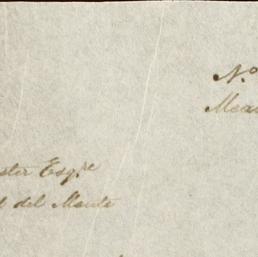 No
ster Esqre
del Monte